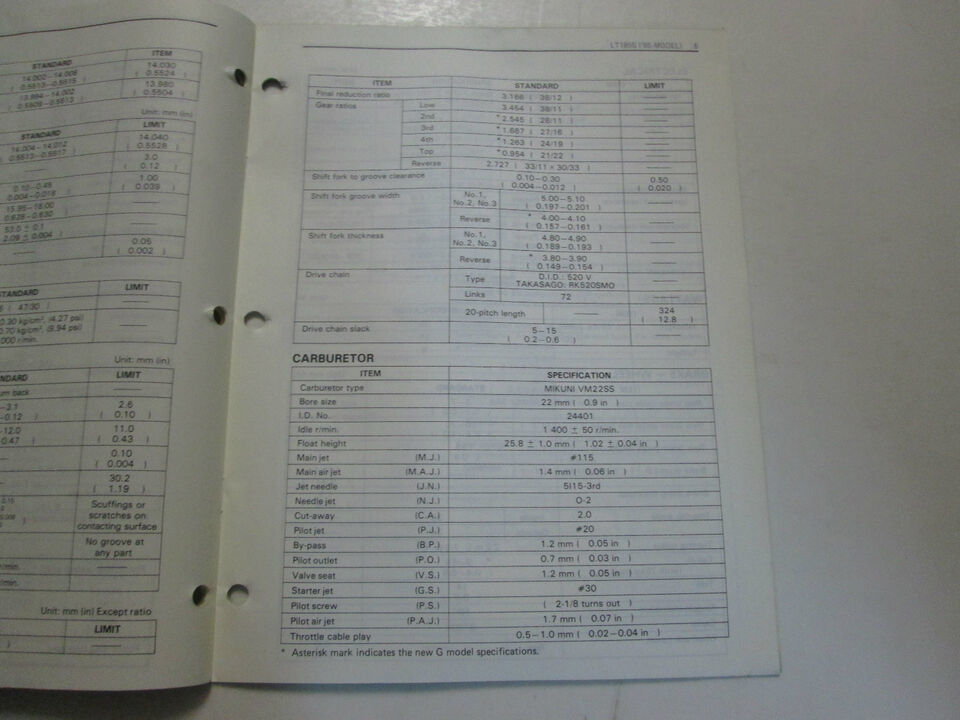 ITEM
STANDARD 14.030
14.002-14.008 ( 0.5524 )
( 0.5513-0.5515 ) 13.980
13.994-14.002 ( 0.5504 )
( 0.5509-0.5513 )
Unit: mm (in)
STANDARD LIMIT
14.004-14.012 14.040
( 0.5513-0.5517 ) ( 0.5528 )
3.0
( 0.12 )
0.10-0.46 1.00
( 0.039 )
53.0 ± 0.1
2.09 ± 0.004 )
0.05
( 0.002 )
STANDARD LIMIT
( 47/30 )
0.30 kg/cm², (4.27 psi)
0.70 kg/cm², (9.94 psi)
000 r/min.
Unit: mm (in)
NDARD LIMIT
rn back
-3.1 2.6
-0.12 ) ( 0.10 )
-12.0 11.0
0.47 ) ( 0.43 )
0.10
( 0.004 )
30.2
( 1.19 )
Scuffings or
scratches on
contacting surface
No groove at
any part
r/min.
r/min.
Unit: mm (in) Except ratio
LIMIT
ITEM STANDARD LIMIT
Final reduction ratio 3.166 ( 38/12 )
Gear ratios Low 3.454 ( 38/11 )
2nd *2.545 ( 28/11 )
3rd *1.687 ( 27/16 )
4th *1.263 ( 24/19 )
Top *0.954 ( 21/22 )
Reverse 2.727 ( 33/11 × 30/33 )
Shift fork to groove clearance 0.10-0.30 0.50
( 0.004-0.012 ) ( 0.020 )
Shift fork groove width No.1, No.2, No.3 5.00-5.10
( 0.197-0.201 )
Reverse * 4.00-4.10
( 0.157-0.161 )
Shift fork thickness No.1, No.2, No.3 4.80-4.90
( 0.189-0.193 )
Reverse * 3.80-3.90
( 0.149-0.154 )
Drive chain Type D.I.D.: 520 V
TAKASAGO: RK520SMO
Links 72
20-pitch length 324
( 12.8 )
Drive chain slack 5-15
( 0.2-0.6 )
CARBURETOR
ITEM SPECIFICATION
Carburetor type MIKUNI VM22SS
Bore size 22 mm ( 0.9 in )
I.D. No. 24401
Idle r/min. 1 400 ± 50 r/min.
Float height 25.8 ± 1.0 mm ( 1.02 ± 0.04 in )
Main jet (M.J.) #115
Main air jet (M.A.J.) 1.4 mm ( 0.06 in )
Jet needle (J.N.) 5I15-3rd
Needle jet (N.J.) O-2
Cut-away (C.A.) 2.0
Pilot jet (P.J.) #20
By-pass (B.P.) 1.2 mm ( 0.05 in )
Pilot outlet (P.O.) 0.7 mm ( 0.03 in )
Valve seat (V.S.) 1.2 mm ( 0.05 in )
Starter jet (G.S.) #30
Pilot screw (P.S.) ( 2-1/8 turns out )
Pilot air jet (P.A.J.) 1.7 mm ( 0.07 in )
Throttle cable play 0.5-1.0 mm ( 0.02-0.04 in )
* Asterisk mark indicates the new G model specifications.